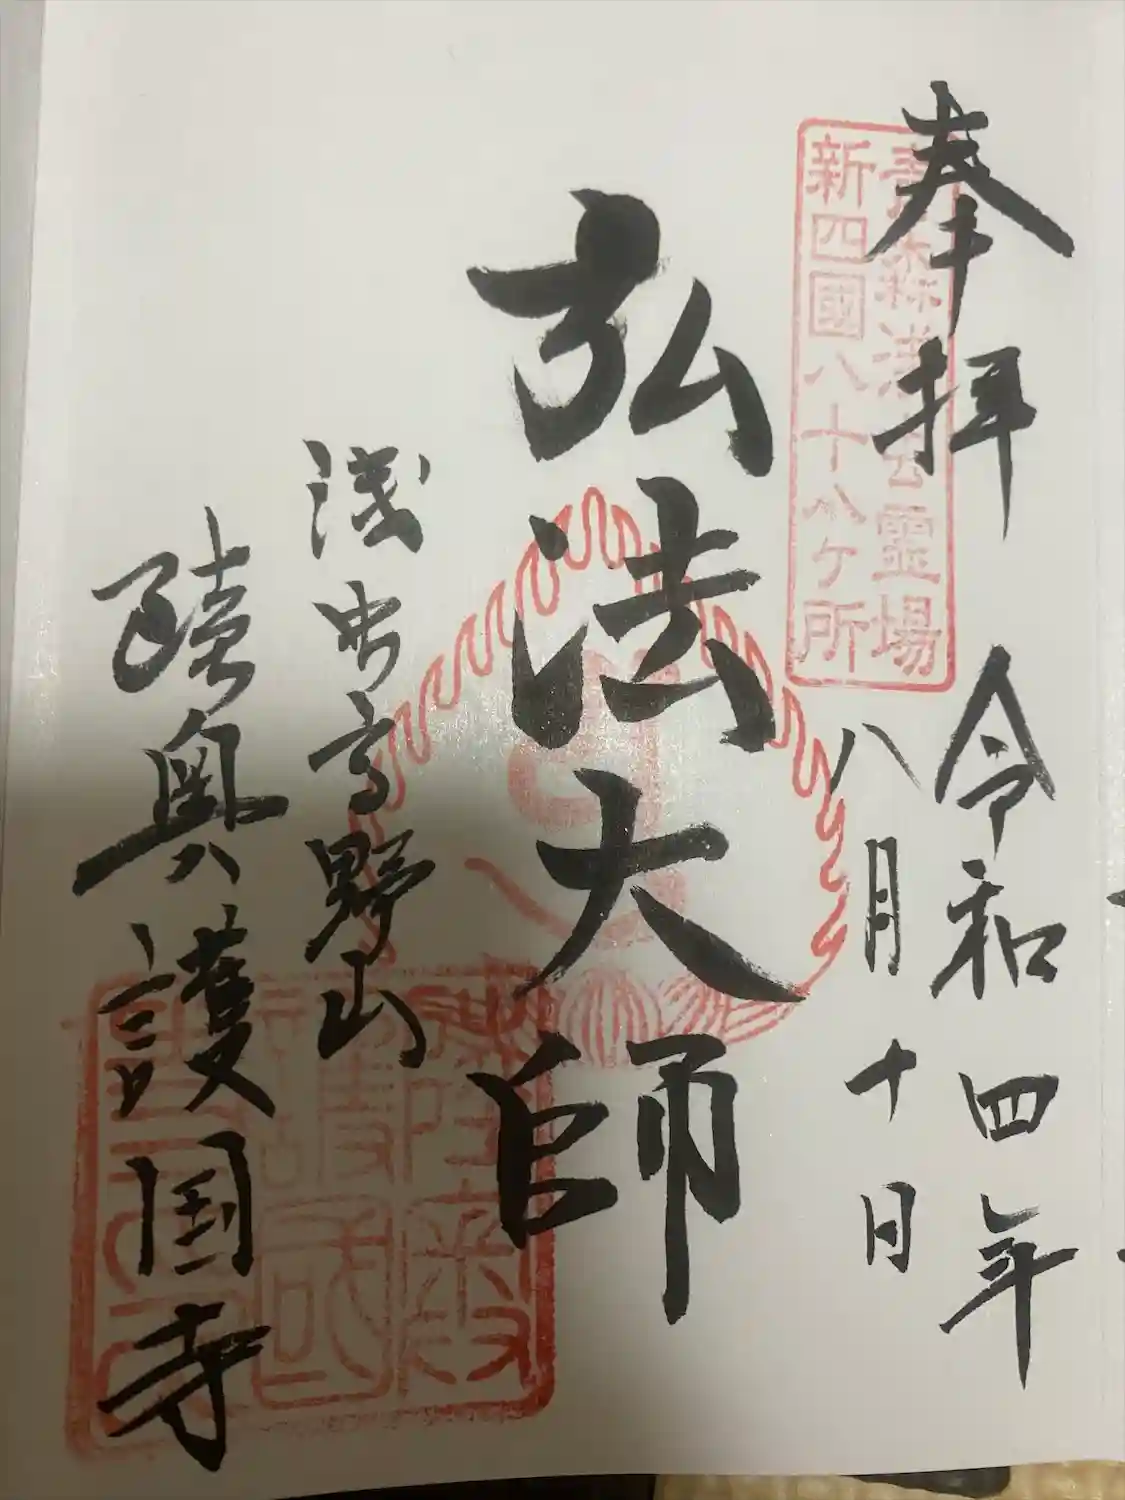 奉拝
令和四年
八月十日
青森浅虫霊場
新四國八十八ヶ所
弘法大師
浅虫高野山
陸奥護国寺